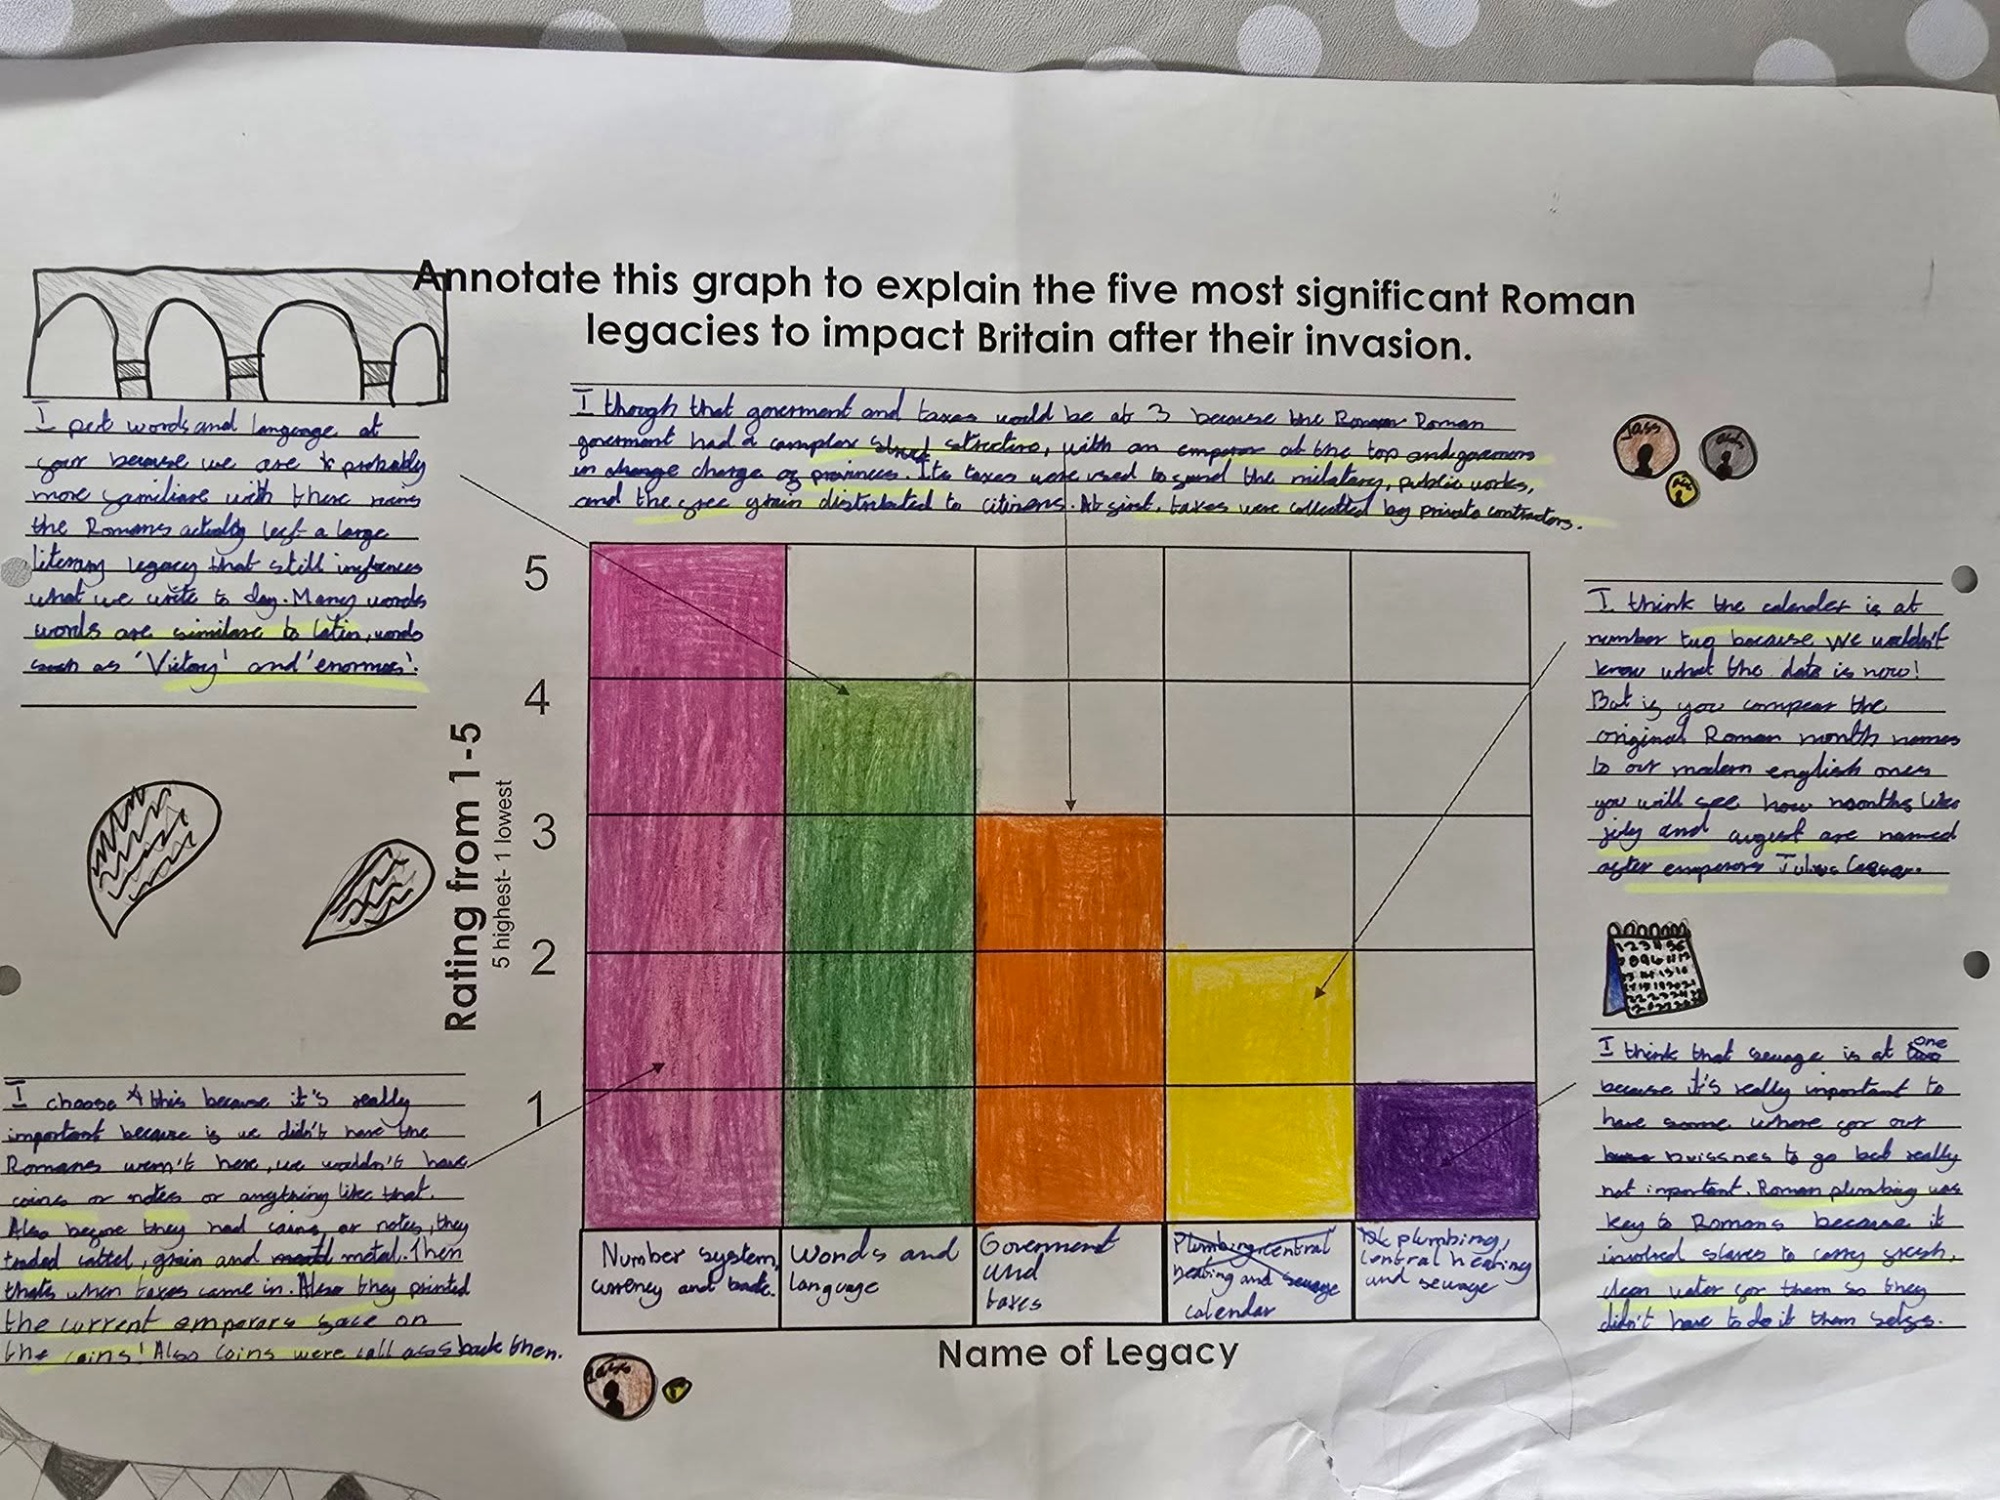 Annotate this graph to explain the five most significant Roman
legacies to impact Britain after their invasion.
I though that goverment and taxes would be at 3 because the Roman Roman
goverment had a complex struct sctructire, with an emperor at the top and governors
in charge charge of provinces. Its taxes were used to fund the milatary, public works,
and the free grain distributed to citizens. At first, taxes were collected by private contractors.
I put words and language at
four because we are probably
more familiare with these
the Romans actually left a large
literary legacy that still influences
what we write to day. Many words
words are similare to latin, words
such as 'Victory' and 'enormes'.
I choose this because it's really
important because if we didn't have the
Romanes weren't here, we wouldn't have
coins or notes or anything like that.
Also before they had coins or notes, they
traded cattel, grain and metal metal. Then
thats when taxes came in. Also they printed
the current emperors face on
the coins! Also coins were call ass back then.
5
4
3
2
1
Rating from 1-5
5 highest- 1 lowest
Number system,
currency and trade.
Words and
language
Goverment
and
taxes
Plumbing, central
heating and sewage
calendar
plumbing,
central heating
and sewage
Name of Legacy
I think the calender is at
number two because we wouldn't
know what the date is now!
But if you compear the
original Roman month names
to our modern english ones
you will see how months like
july and august are named
after emperors Julius Ceasar.
I think that sewage is at two one
because it's really important to
have some where for our
buissnes to go but really
not inportant. Roman plumbing was
key to Romans because it
involved slaves to carry fresh,
clean water for them so they
didn't have to do it them selfs.